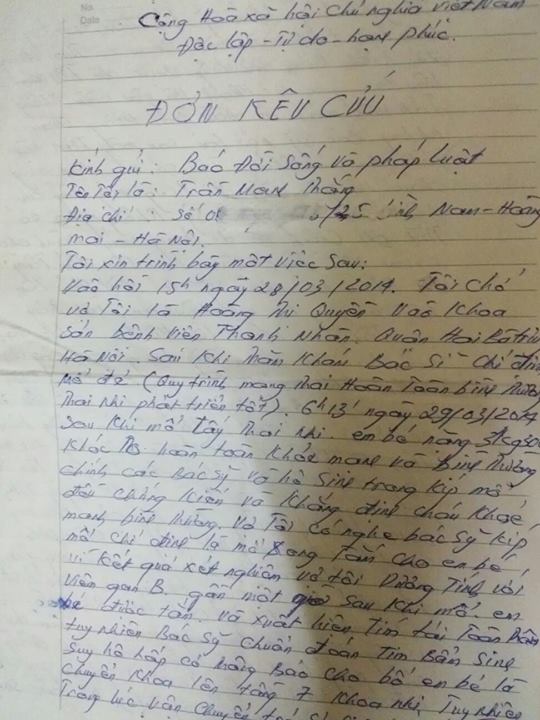 No.
Date
Cộng Hoà xã hội Chủ nghĩa Việt Nam
Độc lập - Tự do - hạnh phúc.
ĐƠN KÊU CỨU
Kính gửi : Báo Đời Sống và pháp luật
Tên Tôi là : Trần Mạnh Thắng
Địa chỉ : Số 01 Nam - Hoàng
mai - Hà Nội.
Tôi xin trình bày một việc sau:
Vào hồi 15h ngày 28/03/2017. Tôi chở
vợ Tôi là Hoàng Thị Quyên vào Khoa
sản bệnh viện Thanh Nhàn. Quận Hai Bà trưng
Hà Nội. Sau Khi Thăm Khám Bác Sĩ Chỉ định
mổ đẻ (Quy trình mang thai Hoàn Toàn bình Thường
Thai Nhi phát triển tốt). 6h13' ngày 29/03/2017
Sau Khi mổ lấy Thai nhi. em bé nặng
Khóc to hoàn toàn Khỏe mạnh và Bình Thường
chính các Bác Sỹ và hộ Sinh trong Kíp mổ
đều chứng Kiến và Khẳng định cháu Khoẻ
mạnh bình Thường. Vợ Tôi có nghe bác Sỹ Kíp
mổ chỉ định là mổ Song Tắm cho em bé,
vì Kết quả xét nghiệm vợ tôi Dương Tính với
viêm gan B. gần một giờ Sau Khi mổ. em
bé được tắm. và xuất hiện Tím tái Toàn thân
tuy nhiên Bác Sỹ chuẩn đoán Tim Bẩm Sinh
Suy hô hấp có Thông Báo cho bố em bé là
chuyển Khoa lên tầng 7 Khoa nhi, Tuy nhiên
Trong lúc vận chuyển